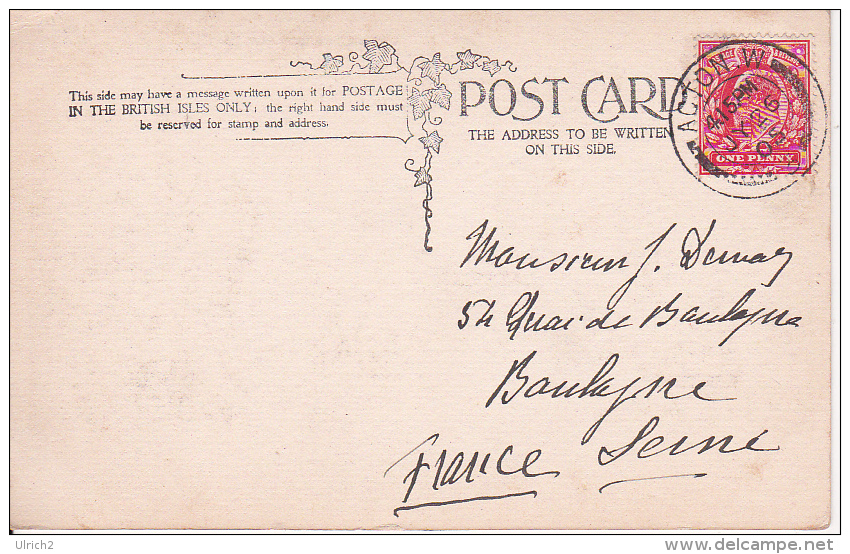 This side may have a message written upon it for POSTAGE
IN THE BRITISH ISLES ONLY; the right hand side must
be reserved for stamp and address.
POST CARD
THE ADDRESS TO BE WRITTEN
ON THIS SIDE.
ACTON. W.
4.15 PM
JY 26
05
ONE PENNY
Monsieur J.
Quai de Boulogne
Boulogne
Seine
France
Ulrich2
www.delcampe.net